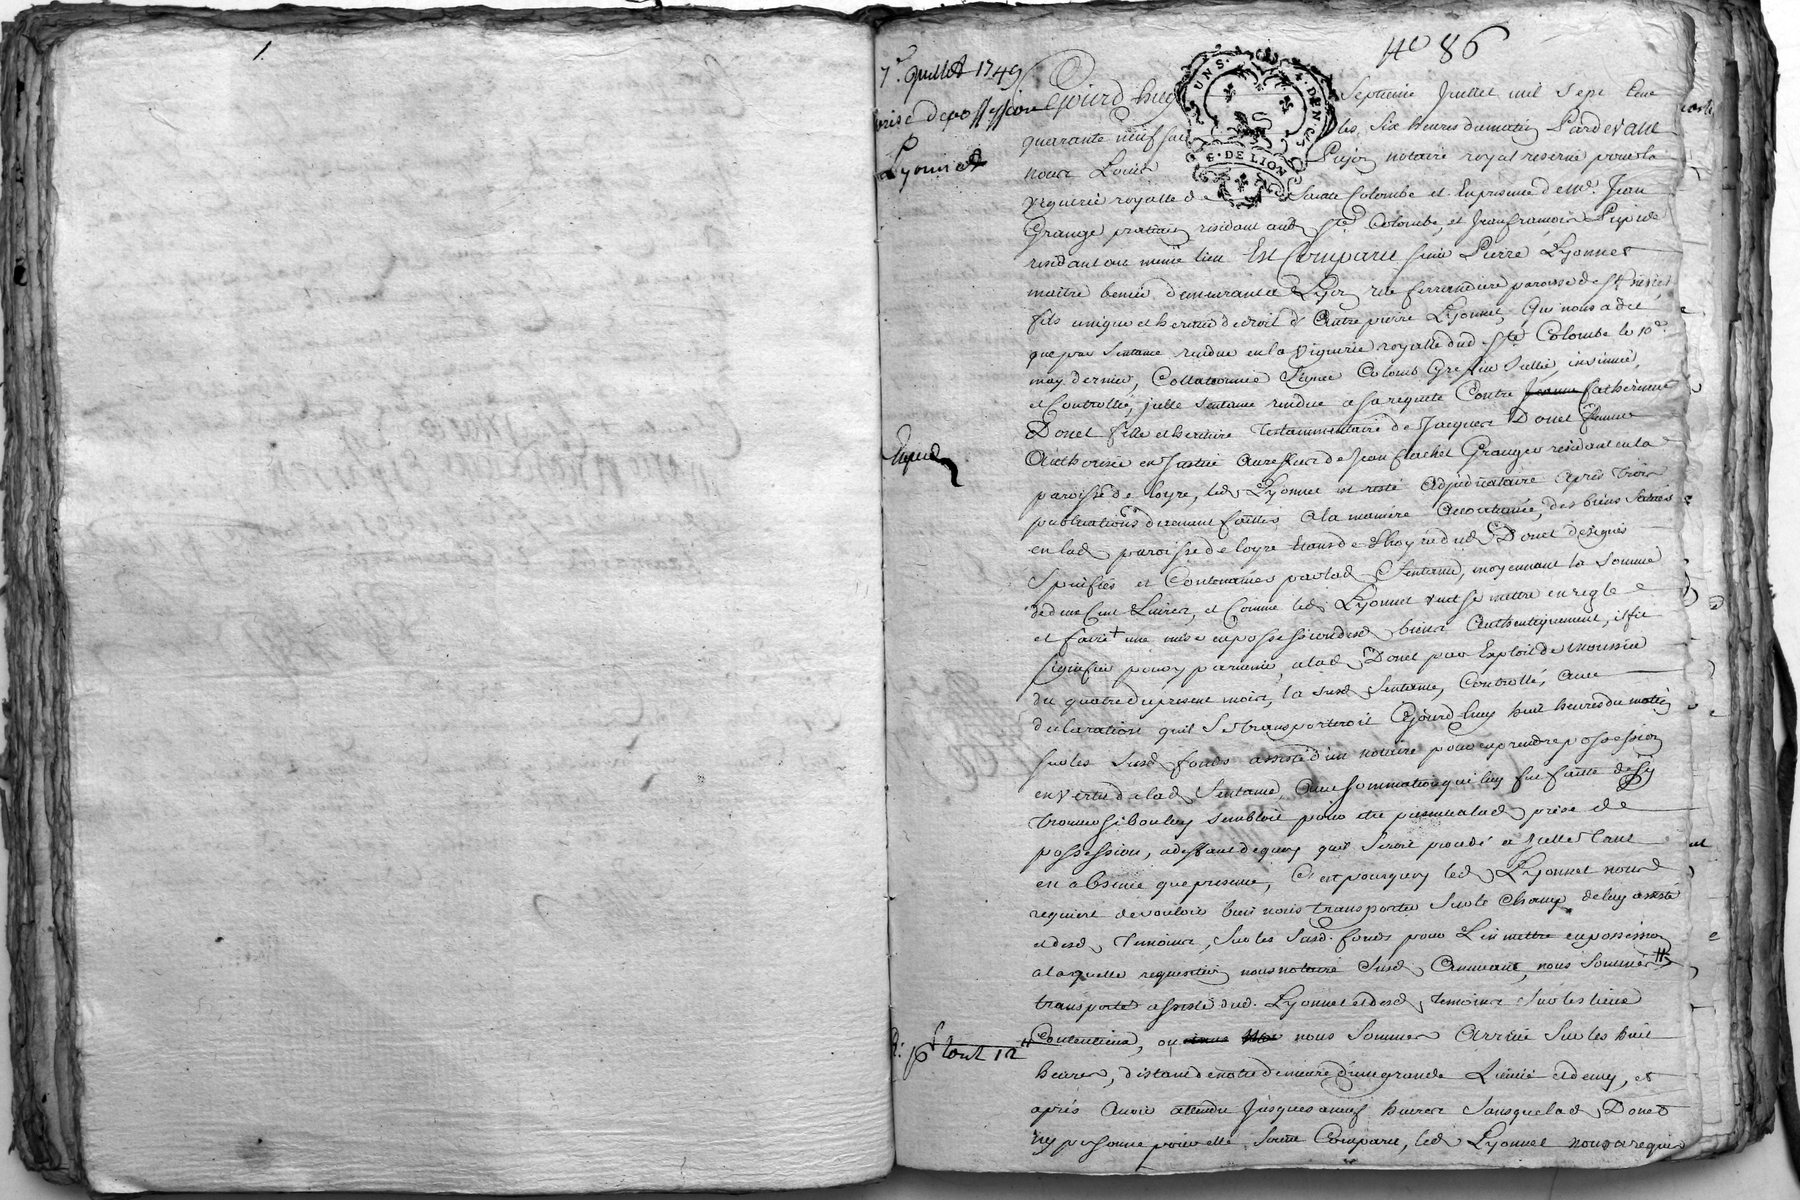 1.
No 86
7e juillet 1749
prise de possession
Lyonnet
UNS. 4. DEN.
G. DE LION
Ajourd'huy Septieme Juillet mil Sept Cent
quarante neuf sur les Six heures du matin Pardevant
nous Louis Pujol notaire royal reservé pour la
viguerie royalle de Sainte Colombe et En presence de Me. Jean
Grange praticien residant aud Ste Colombe, et Jean francois
residant au meme lieu Est Comparu sieur Pierre Lyonnet
maitre demeurant a Lyon rue ferrandiere paroisse de St Nizier
fils unique et heritier de droit d'Autre pierre Lyonnet, Qui nous a dit
que par Sentence rendue en la viguerie royalle dud Ste Colombe le 10e
may dernier, Collationnée Signée Colomb Greffier Scellée, insinuée,
et Controllée, jcelle Sentence rendue a sa requete Contre Jeanne Catherine
Donet fille et heritiere Testammentaire de Jacques Donet femme
Authorisée en Justice Au reffus de Jean flachet Granger residant en la
Expedié
paroisse de loyre, led Lyonnet est resté Adjudicataire Apres trois
publications duement faittes A la maniere Accoutumée, des biens Scitués
en lad paroisse de loyre dud Donet designés
Specifiés et Contenancés par lad Sentence, moyennant la Somme
de deux Cent Livres, et Comme led Lyonnet veut se mettre en regle
et faire + une mise en possession desd biens Authentiquement, il fit
signifier pour y parvenir a lad Donet par Exploit de
du quatre du present mois, la susd Sentence, Controllé, avec
declaration qu'il Se transporteroit Ajourd'huy huit heures du matin
sur les Susd fonds assisté d'un notaire pour en prendre possession
en vertu de lad Sentence, avec sommation qui luy fut faitte de s'y
trouver si bon luy Sembloit pour etre presente a lad prise de
possession, a deffaut de quoy qu'il Seroit procedé a jcelle tant
en absence que presence, C'est pourquoy led Lyonnet nous
requiert de vouloir bien nous transporter Sur le Champ de luy assisté
et desd temoins, Sur les Susd. fonds pour L'en mettre en possession
a laquelle requisition nous notaire Susd nous Sommes #
transporté assisté dud. Lyonnet et desd temoins Sur les lieux
Contentieux, ou nous Sommes Arrivé Sur les huit
heures, distant de notre demeure d'une grande Lieue et demy, et
apres Avoir attendu Jusques a neuf heures Sans que lad Donet
ny personne pour elle Soient Comparu, led Lyonnet nous a requis